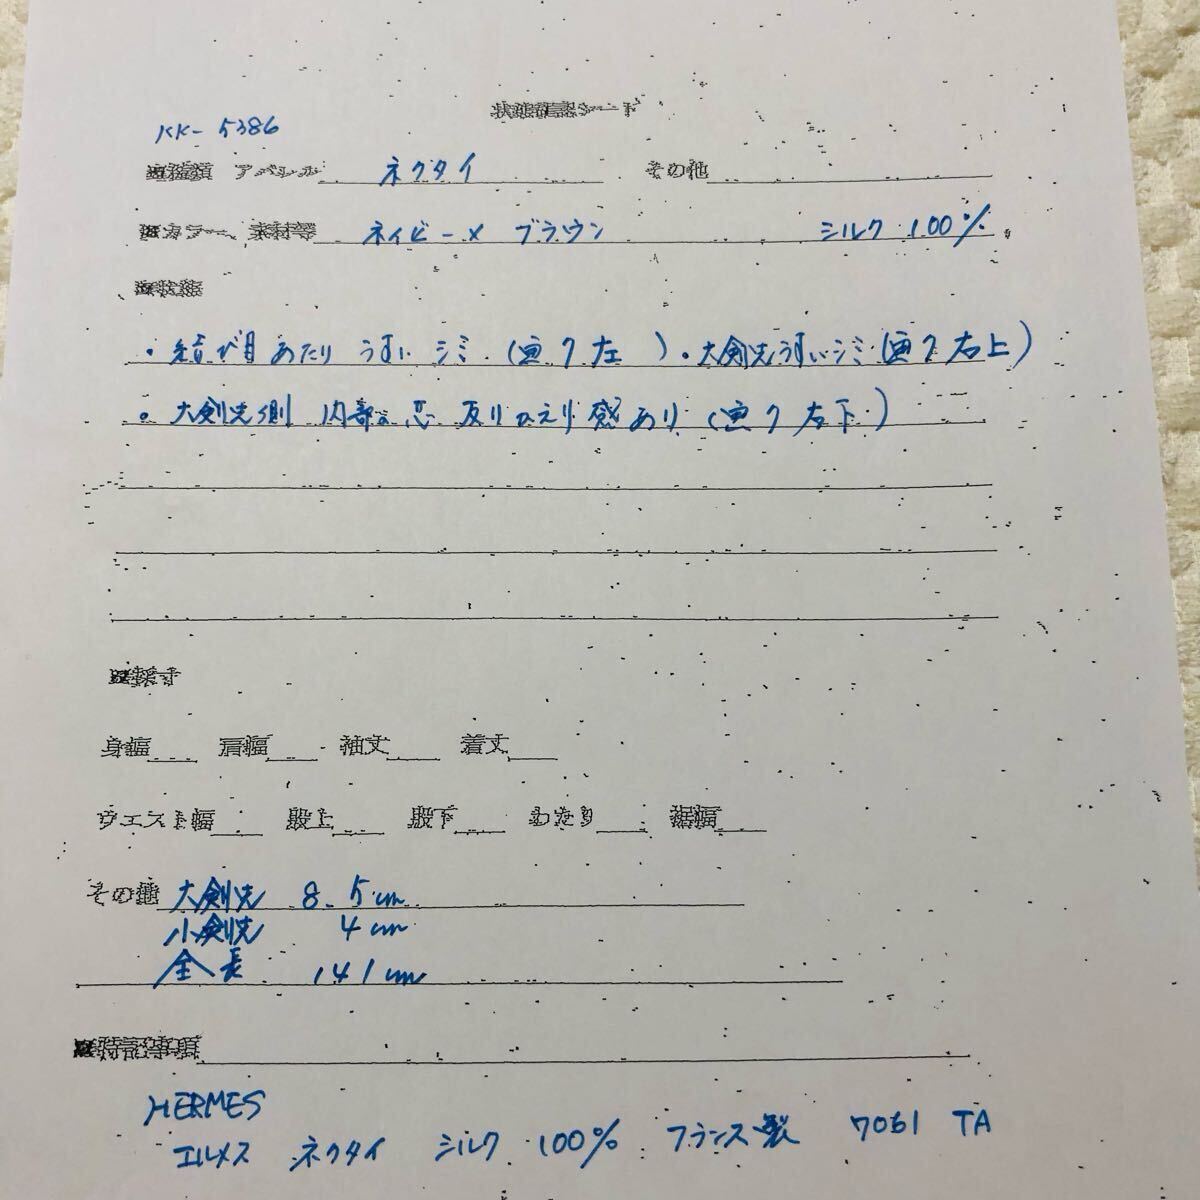 状態確認シート
KK-5386
■種類 アパレル ネクタイ その他
■カラー、素材等 ネイビー× ブラウン シルク 100%
■状態
・結び目あたり うすい シミ (画7左 )・大剣先うすいシミ(画7右上)
・大剣先側 内部芯 反りかえり感あり (画7左下)
■採寸
身幅 肩幅 袖丈 着丈
ウエスト幅 股上 股下 わたり 裾幅
その他 大剣先 8.5cm
小剣先 4cm
全長 141cm
■特記事項
HERMES
エルメス ネクタイ シルク 100% フランス製 7051 TA